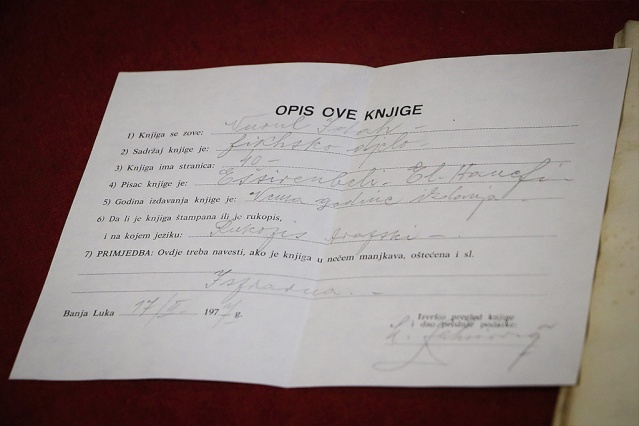 OPIS OVE KNJIGE
1) Knjiga se zove: Nurul Izah -
2) Sadržaj knjige je: fikhsko djelo -
3) Knjiga ima stranica: 40 -
4) Pisac knjige je: Eššurenbeli. El. Hanefi -
5) Godina izdavanja knjige je: Nema godine izdanja -
6) Da li je knjiga štampana ili je rukopis,
i na kojem jeziku: Rukopis Arapski -
7) PRIMJEDBA: Ovdje treba navesti, ako je knjiga u nečem manjkava, oštećena i sl.
Ispravna -
Banja Luka 17/ 197 g.
Izvršio pregled knjige
i dao prednje podatke: